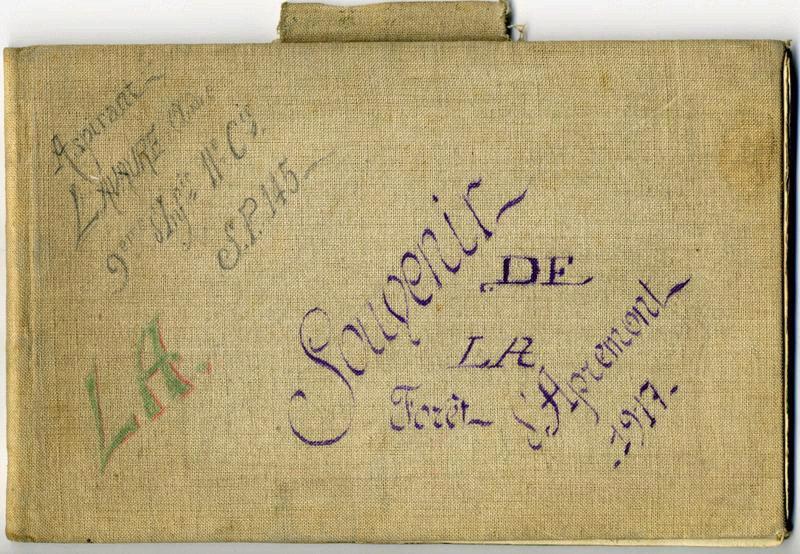 Aspirant
LAVAURE
9ème 11e Cie
S.P. 145
LA.
Souvenir
DE
LA
Forêt d'Apremont
1917.